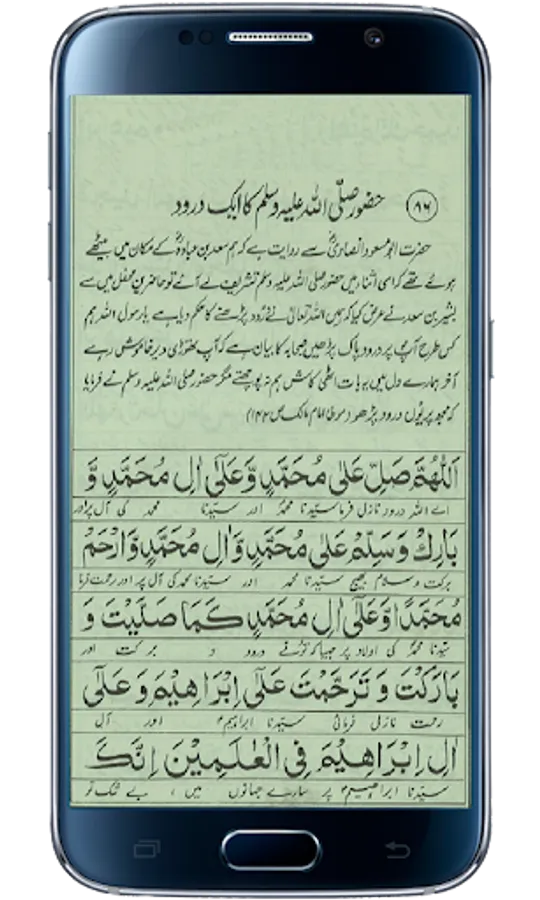 ۹۶ حضور صلّی اللہ علیہ وسلم کا ایک درود
حضرت ابو مسعود انصاریؓ سے روایت ہے کہ ہم سعد بن عبادہؓ کے مکان میں بیٹھے
ہوئے تھے کہ اسی اثنا میں حضور صلی اللہ علیہ وسلم تشریف لے آئے تو حاضرین محفل میں سے
بشیر بن سعد نے عرض کیا کہ ہمیں اللہ تعالیٰ نے درود پڑھنے کا حکم دیا ہے یا رسول اللہ ہم
کس طرح آپ پر درود پاک پڑھیں صحابہ کا بیان ہے کہ آپ تھوڑی دیر خاموش رہے
آخر ہمارے دل میں یہ بات اٹھی کاش ہم نہ پوچھتے مگر حضور صلی اللہ علیہ وسلم نے فرمایا
کہ مجھ پر یوں درود پڑھو (موطا امام مالک ص ۱۴۴)
اَللّٰهُمَّ صَلِّ عَلٰى مُحَمَّدٍ وَّعَلٰٓى اٰلِ مُحَمَّدٍ وَّ
اے اللہ درود نازل فرما سیّدنا محمدؐ اور سیّدنا محمد کی آل پر اور
بَارِكْ وَسَلِّمْ عَلٰى مُحَمَّدٍ وَّاٰلِ مُحَمَّدٍ وَّارْحَمْ
برکت و سلام بھیج سیّدنا محمد اور سیّدنا محمد کی آل پر اور رحمت فرما
مُحَمَّدًا وَّعَلٰٓى اٰلِ مُحَمَّدٍ كَمَا صَلَّيْتَ وَ
سیّدنا محمدؐ کی اولاد پر جیسا کہ تو نے درود و برکت اور
بَارَكْتَ وَ تَرَحَّمْتَ عَلٰٓى اِبْرَاهِيْمَ وَعَلٰٓى
رحمت نازل فرمائی سیّدنا ابراہیمؑ اور آل
اٰلِ اِبْرَاهِيْمَ فِى الْعٰلَمِيْنَ اِنَّكَ
سیّدنا ابراہیمؑ پر سارے جہانوں میں ، بے شک تو